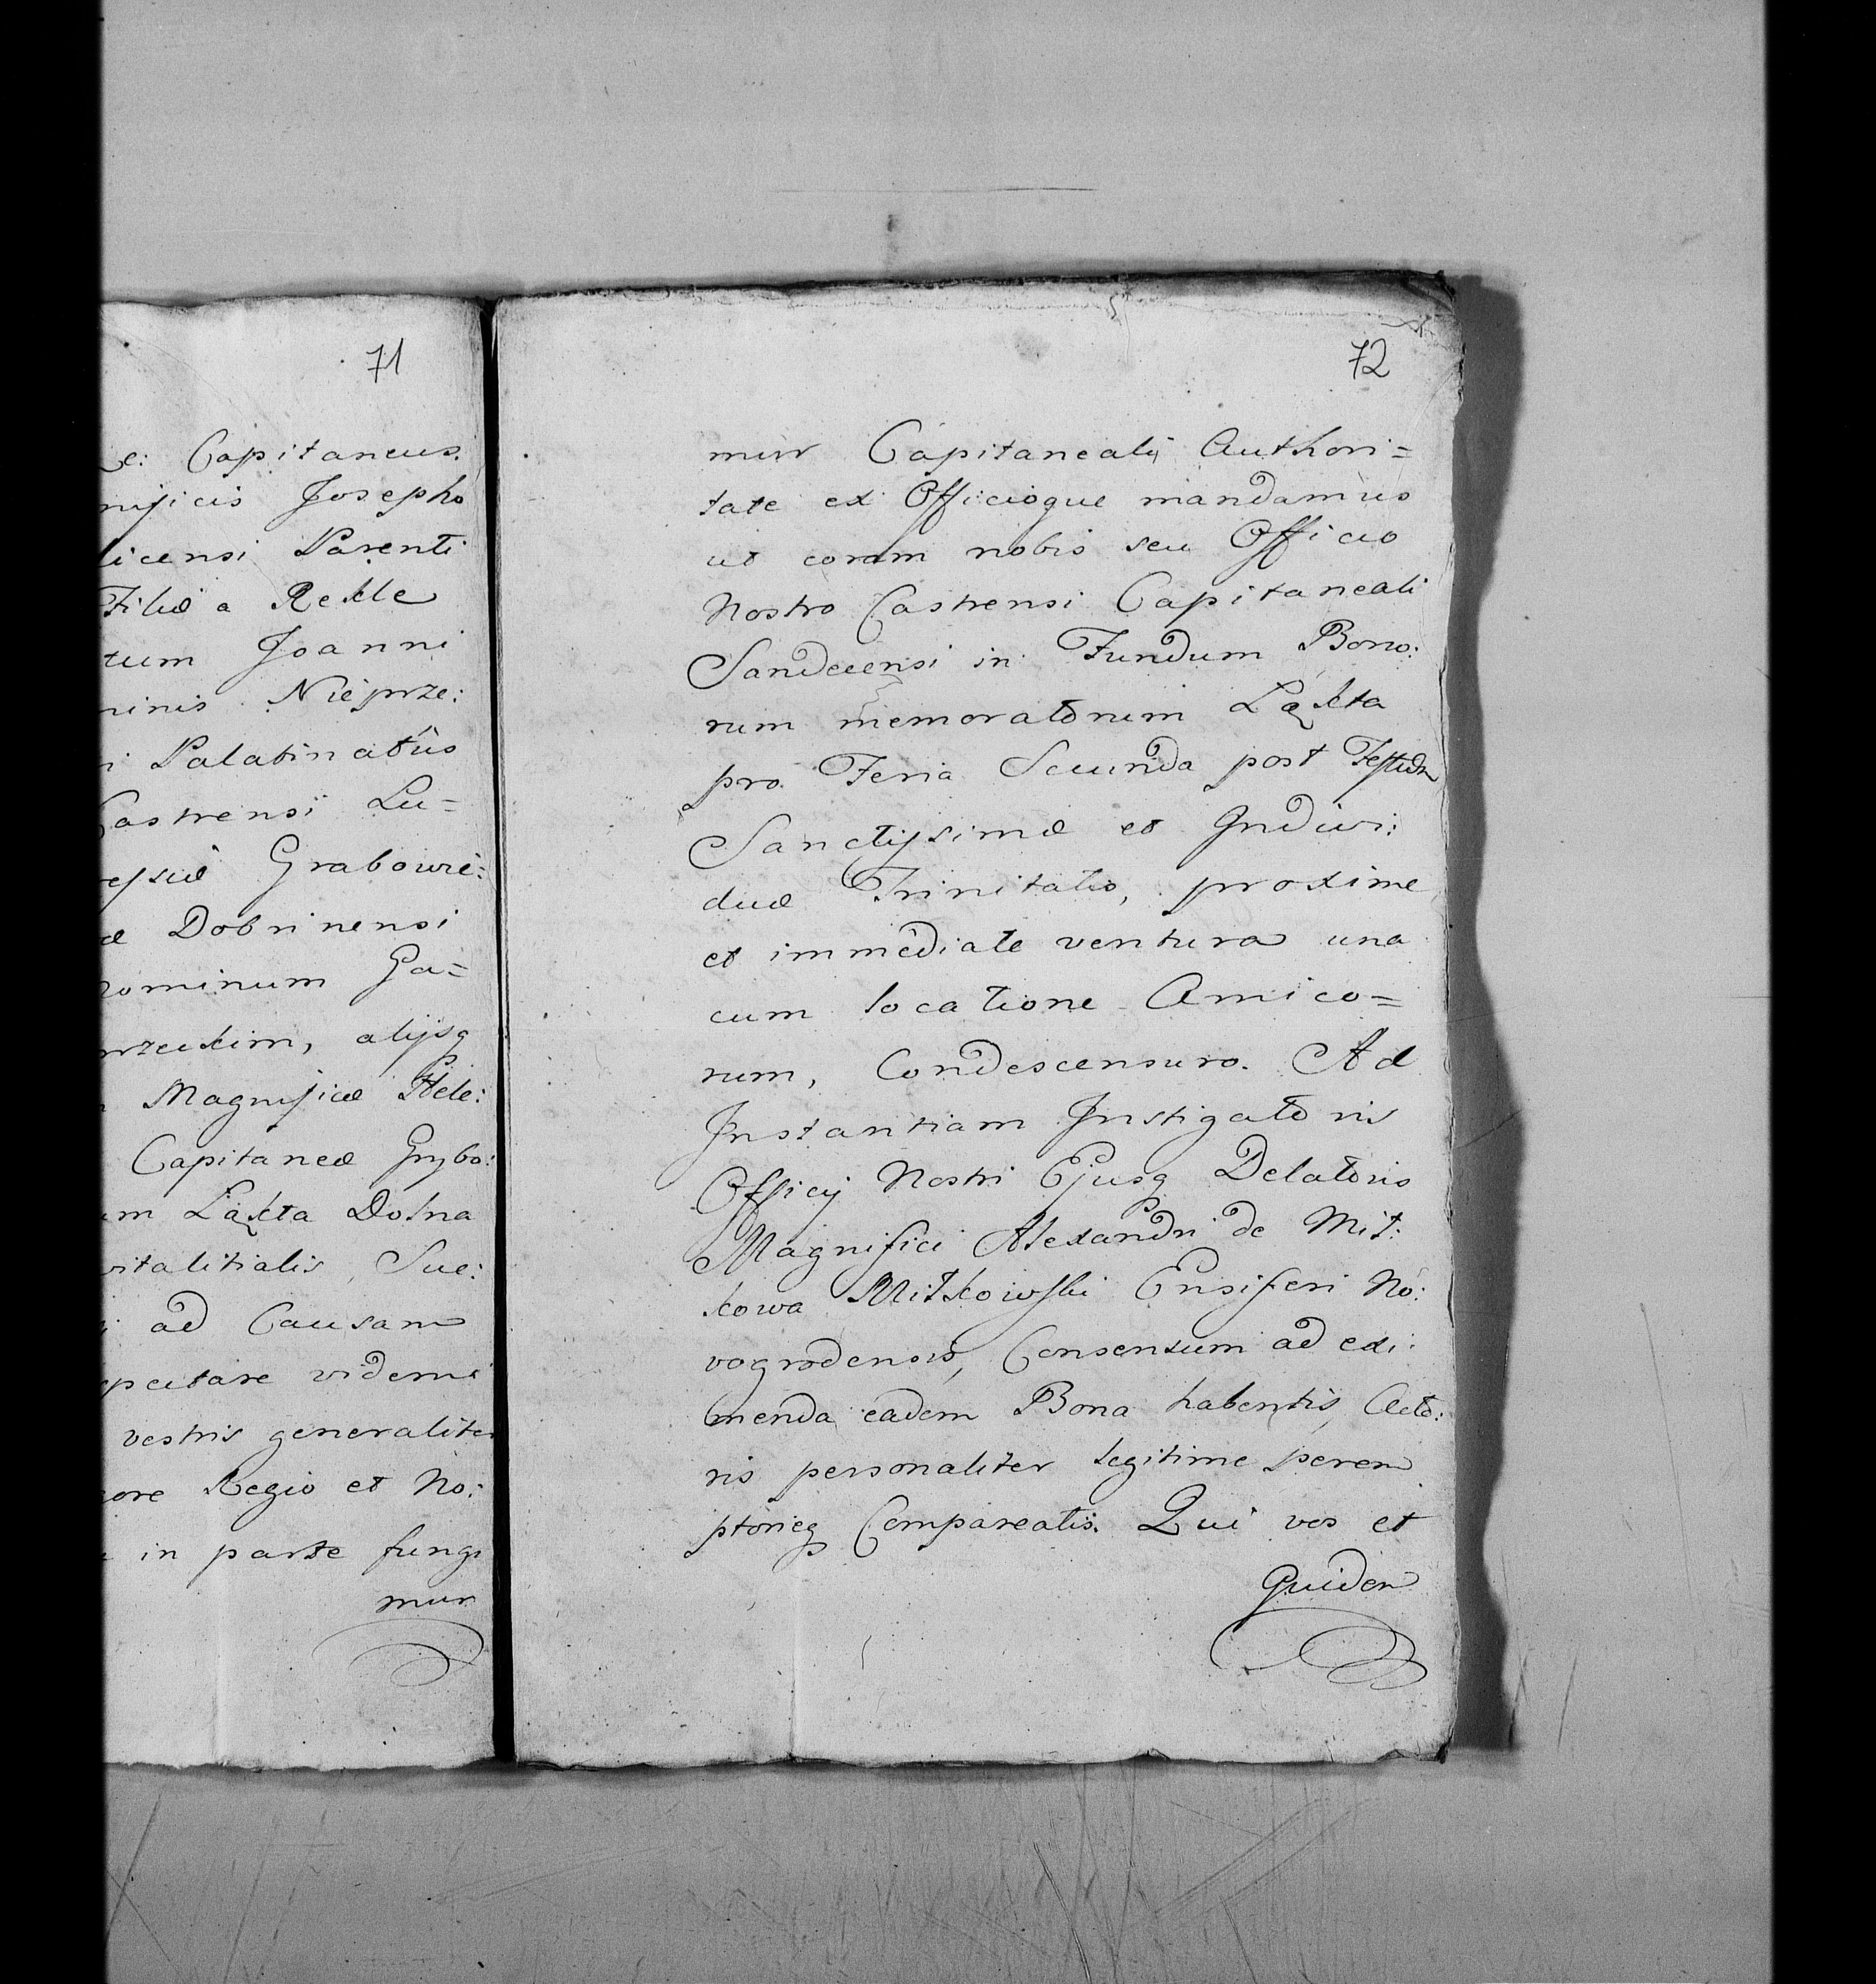 71
e: Capitaneus.
nificis Josepho
licensi Parenti
Filiæ a Rekle
tum Joanni
minis Nieprze:
i Palatinatûs
Castrensi Lu=
essiæ Grabowie:
æ Dobrinensi
nominum Ga=
rzeckim, alijsq
Magnificæ Hele:
Capitaneæ Grybo:
m Łąkta Dolna
vitalitialis, Suc:
i ad Causam
pectare videmi
vestris generaliter
ore Regio et No:
in parte fungi
mur
72
mur Capitaneali Authori=
tate ex Officioque mandamus
ut coram nobis seu Officio
Nostro Castrensi Capitaneali
Sandecensi in Fundum Bono:
rum memoratorum Łąkta
pro Feria Secunda post Festum
Sanctissimæ et Indivi:
duæ Trinitatis, proxime
et immediate ventura una
cum locatione Amico=
rum, Condescensuro. Ad
Instantiam Instigatoris
Officij Nostri Ejusq Delatoris
Magnifici Alexandri de Mit:
kowa Mitkowski Ensiferi No:
vogrodensis, Consensum ad exi:
menda eadem Bona habentis, Acto:
ris personaliter legitime perem
ptorieq Compareatis. Qui vos et
Quidem